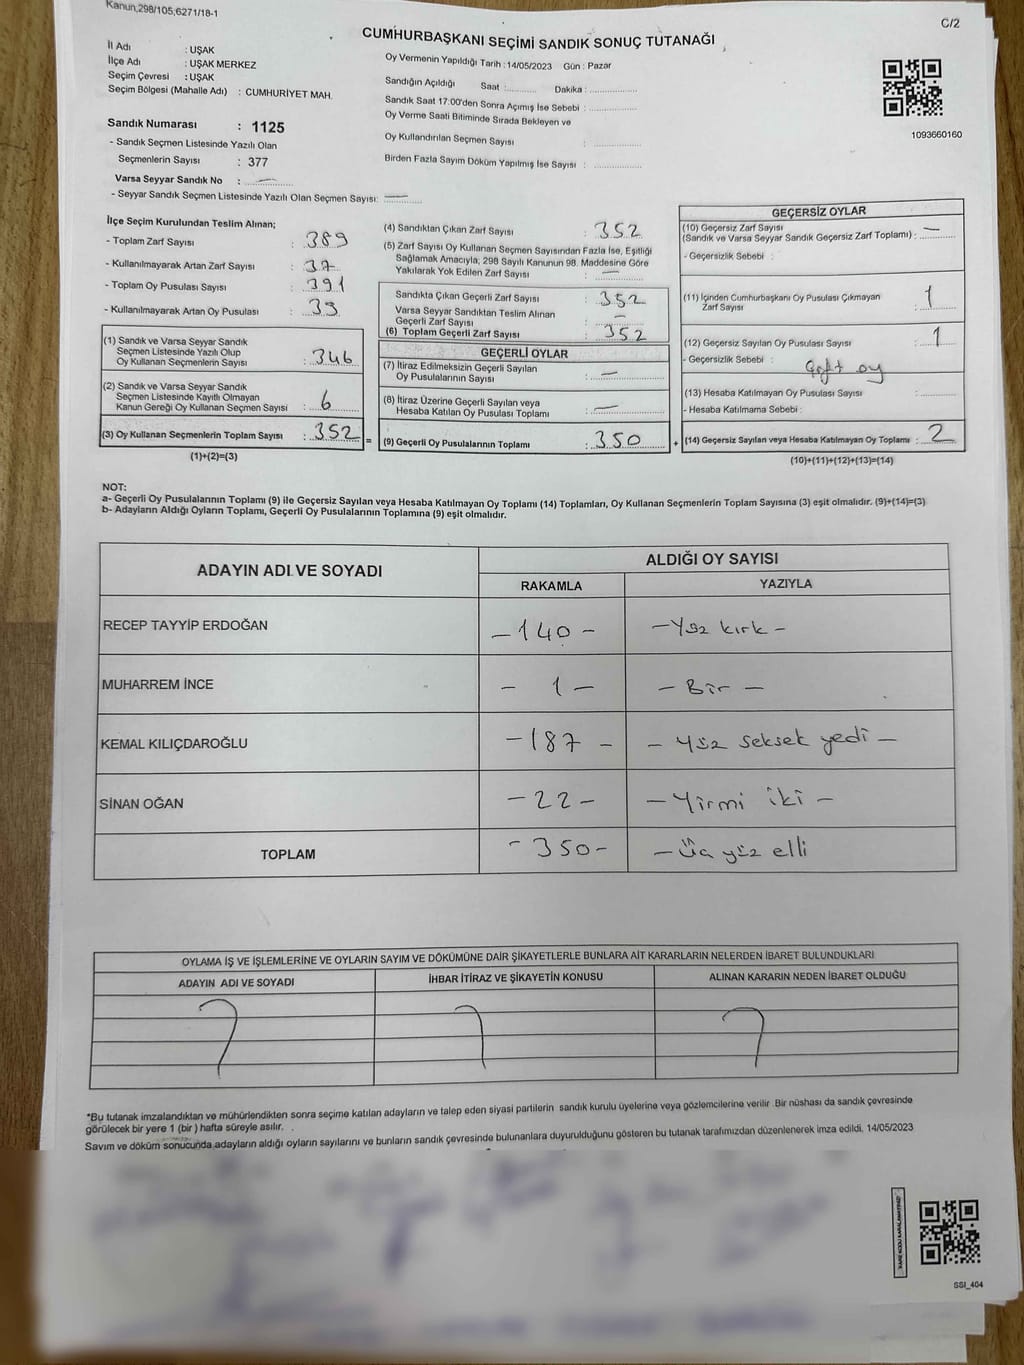 Kanun,298/105,6271/18-1
C/2
CUMHURBAŞKANI SEÇİMİ SANDIK SONUÇ TUTANAĞI
İl Adı : UŞAK
İlçe Adı : UŞAK MERKEZ
Seçim Çevresi : UŞAK
Seçim Bölgesi (Mahalle Adı) : CUMHURİYET MAH.
Sandık Numarası : 1125
- Sandık Seçmen Listesinde Yazılı Olan
Seçmenlerin Sayısı : 377
Varsa Seyyar Sandık No : —
- Seyyar Sandık Seçmen Listesinde Yazılı Olan Seçmen Sayısı: —
Oy Vermenin Yapıldığı Tarih : 14/05/2023 Gün : Pazar
Sandığın Açıldığı Saat :.......... Dakika : ................
Sandık Saat 17:00'den Sonra Açımış İse Sebebi : ................
Oy Verme Saati Bitiminde Sırada Bekleyen ve
Oy Kullandırılan Seçmen Sayısı : ................
Birden Fazla Sayım Döküm Yapılmış İse Sayısı : ................
1093660160
İlçe Seçim Kurulundan Teslim Alınan;
- Toplam Zarf Sayısı : 389
- Kullanılmayarak Artan Zarf Sayısı : 37
- Toplam Oy Pusulası Sayısı : 391
- Kullanılmayarak Artan Oy Pusulası : 39
(1) Sandık ve Varsa Seyyar Sandık
Seçmen Listesinde Yazılı Olup
Oy Kullanan Seçmenlerin Sayısı : 346
(2) Sandık ve Varsa Seyyar Sandık
Seçmen Listesinde Kayıtlı Olmayan
Kanun Gereği Oy Kullanan Seçmen Sayısı : 6
(3) Oy Kullanan Seçmenlerin Toplam Sayısı : 352 =
(1)+(2)=(3)
(4) Sandıktan Çıkan Zarf Sayısı : 352
(5) Zarf Sayısı Oy Kullanan Seçmen Sayısından Fazla İse, Eşitliği
Sağlamak Amacıyla; 298 Sayılı Kanunun 98. Maddesine Göre
Yakılarak Yok Edilen Zarf Sayısı : —
Sandıkta Çıkan Geçerli Zarf Sayısı : 352
Varsa Seyyar Sandıktan Teslim Alınan
Geçerli Zarf Sayısı : —
(6) Toplam Geçerli Zarf Sayısı : 352
GEÇERLİ OYLAR
(7) İtiraz Edilmeksizin Geçerli Sayılan
Oy Pusulalarının Sayısı : —
(8) İtiraz Üzerine Geçerli Sayılan veya
Hesaba Katılan Oy Pusulası Toplamı : —
(9) Geçerli Oy Pusulalarının Toplamı : 350 +
GEÇERSİZ OYLAR
(10) Geçersiz Zarf Sayısı
(Sandık ve Varsa Seyyar Sandık Geçersiz Zarf Toplamı) : —
- Geçersizlik Sebebi :
(11) İçinden Cumhurbaşkanı Oy Pusulası Çıkmayan
Zarf Sayısı : 1
(12) Geçersiz Sayılan Oy Pusulası Sayısı : 1
- Geçersizlik Sebebi : Çift oy
(13) Hesaba Katılmayan Oy Pusulası Sayısı : ..........
- Hesaba Katılmama Sebebi :
(14) Geçersiz Sayılan veya Hesaba Katılmayan Oy Toplamı : 2
(10)+(11)+(12)+(13)=(14)
NOT:
a- Geçerli Oy Pusulalarının Toplamı (9) ile Geçersiz Sayılan veya Hesaba Katılmayan Oy Toplamı (14) Toplamları, Oy Kullanan Seçmenlerin Toplam Sayısına (3) eşit olmalıdır. (9)+(14)=(3)
b- Adayların Aldığı Oyların Toplamı, Geçerli Oy Pusulalarının Toplamına (9) eşit olmalıdır.
ADAYIN ADI VE SOYADI ALDIĞI OY SAYISI
RAKAMLA YAZIYLA
RECEP TAYYİP ERDOĞAN – 140 – – Yüz kırk –
MUHARREM İNCE – 1 – – Bir –
KEMAL KILIÇDAROĞLU – 187 – – Yüz seksek yedi –
SİNAN OĞAN – 22 – – Yirmi iki –
TOPLAM – 350 – – Üç yüz elli
OYLAMA İŞ VE İŞLEMLERİNE VE OYLARIN SAYIM VE DÖKÜMÜNE DAİR ŞİKAYETLERLE BUNLARA AİT KARARLARIN NELERDEN İBARET BULUNDUKLARI
ADAYIN ADI VE SOYADI İHBAR İTİRAZ VE ŞİKAYETİN KONUSU ALINAN KARARIN NEDEN İBARET OLDUĞU
*Bu tutanak imzalandıktan ve mühürlendikten sonra seçime katılan adayların ve talep eden siyasi partilerin sandık kurulu üyelerine veya gözlemcilerine verilir. Bir nüshası da sandık çevresinde
görülecek bir yere 1 (bir ) hafta süreyle asılır.
Sayım ve döküm sonucunda adayların aldığı oyların sayılarını ve bunların sandık çevresinde bulunanlara duyurulduğunu gösteren bu tutanak tarafımızdan düzenlenerek imza edildi. 14/05/2023
SSI_404